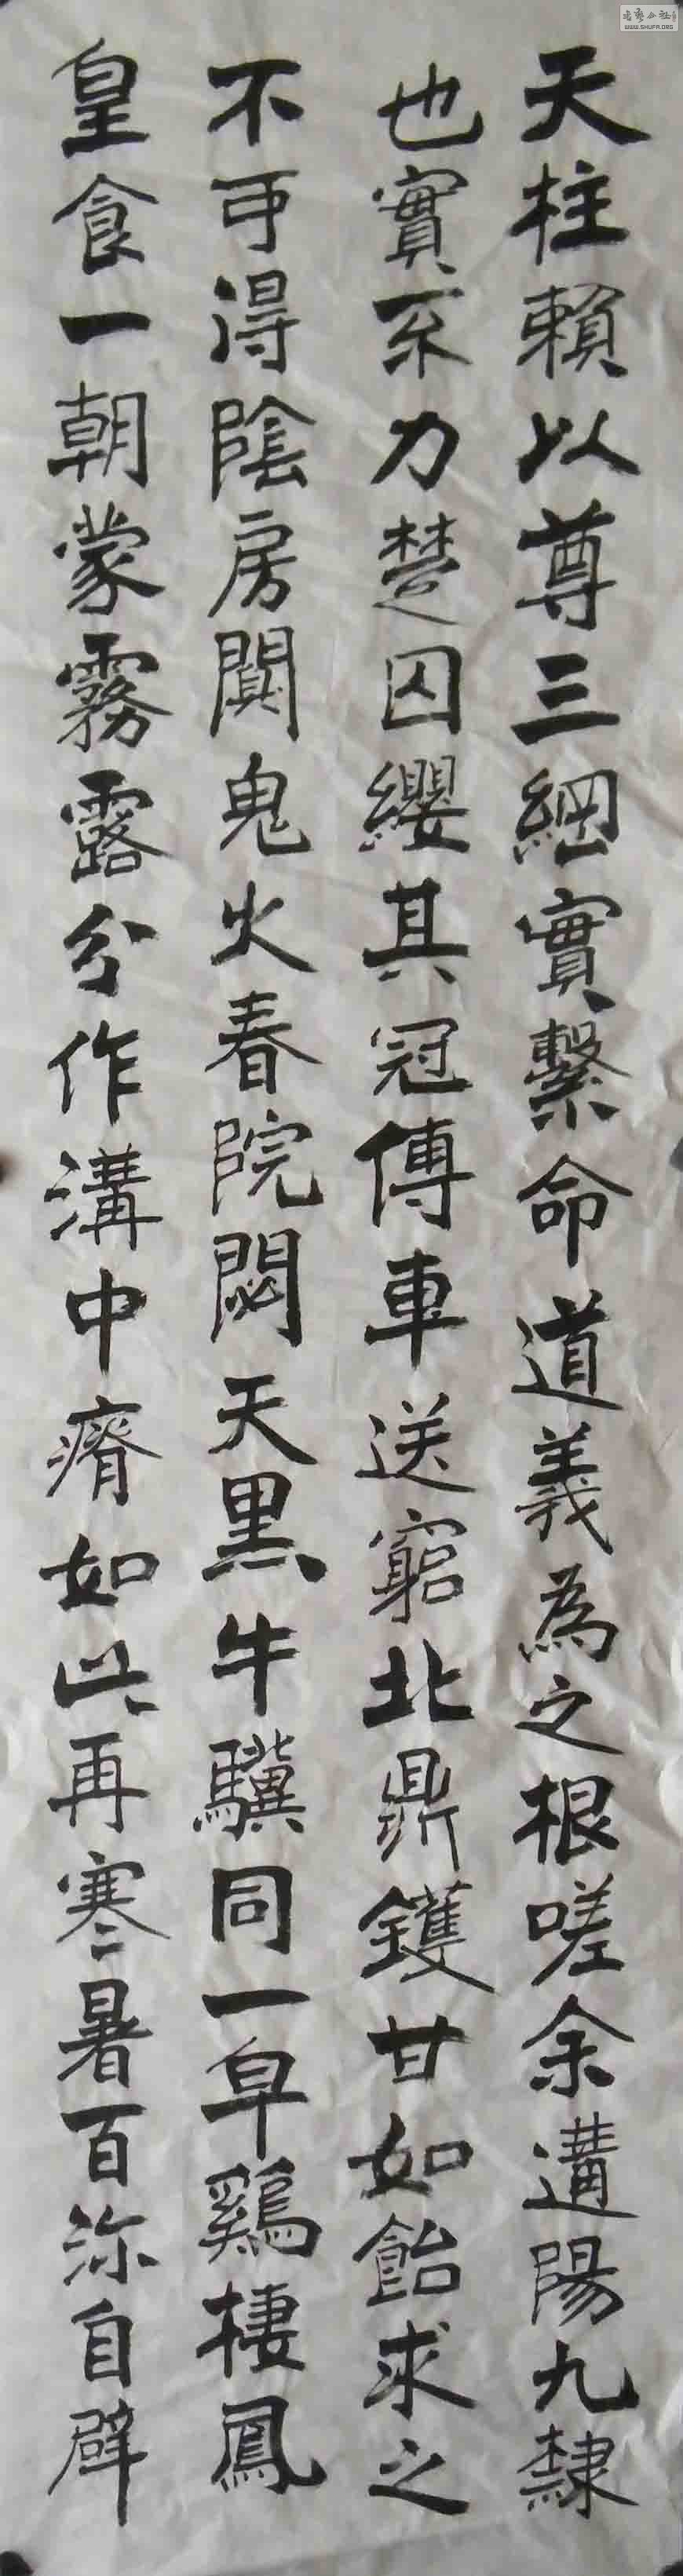 天柱賴以尊三綱實繫命道義為之根嗟余遘陽九隸
也實不力楚囚纓其冠傳車送窮北鼎鑊甘如飴求之
不可得陰房闃鬼火春院閟天黑牛驥同一皁鷄棲鳳
皇食一朝蒙霧露分作溝中瘠如此再寒暑百沴自辟
WWW.SHUFA.ORG